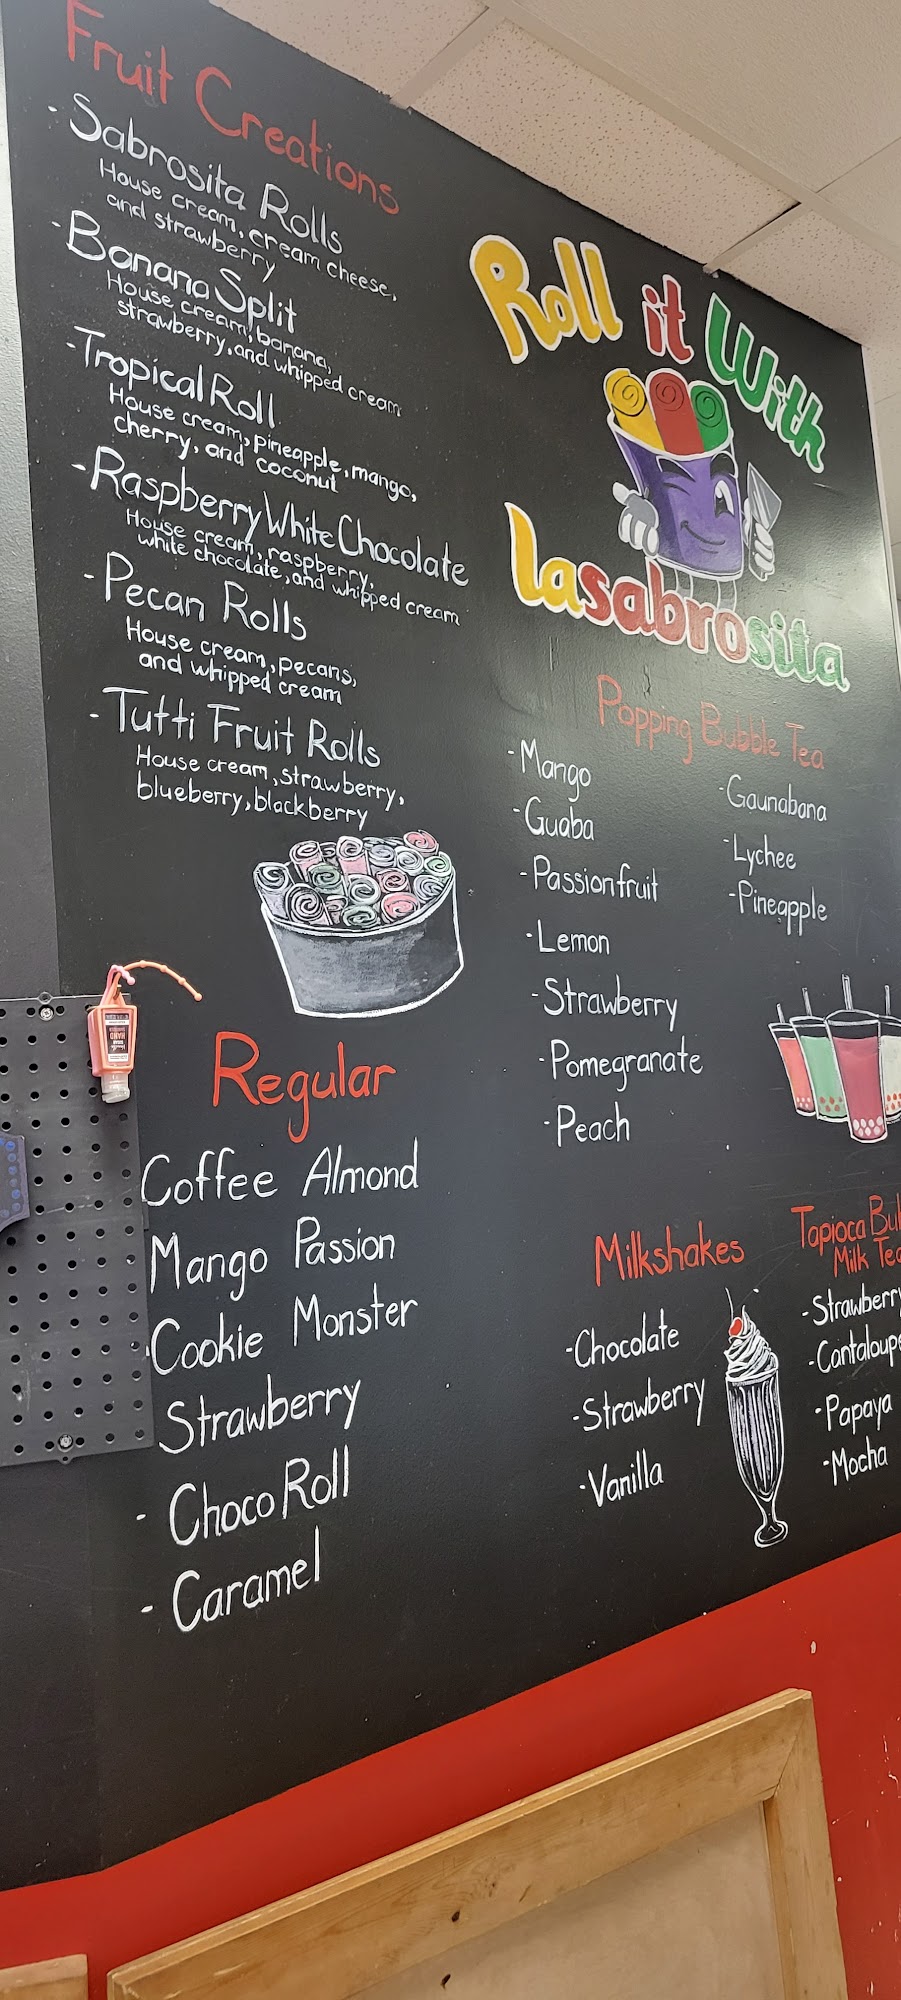 Fruit Creations
- Sabrosita Rolls
House cream, cream cheese,
and strawberry
- Banana Split
House cream, banana,
strawberry, and whipped cream
- Tropical Roll
House cream, pineapple, mango,
cherry, and coconut
- Raspberry White Chocolate
House cream, raspberry,
white chocolate, and whipped cream
- Pecan Rolls
House cream, pecans,
and whipped cream
- Tutti Fruit Rolls
House cream, strawberry,
blueberry, blackberry
Regular
Coffee Almond
Mango Passion
Cookie Monster
Strawberry
- Choco Roll
- Caramel
Roll it With
lasabrosita
Popping Bubble Tea
- Mango
- Guaba
- Passionfruit
- Lemon
- Strawberry
- Pomegranate
- Peach
- Gaunabana
- Lychee
- Pineapple
Milkshakes
- Chocolate
- Strawberry
- Vanilla
Tapioca
Milk
- Strawberry
- Cantaloupe
- Papaya
- Mocha
HAND